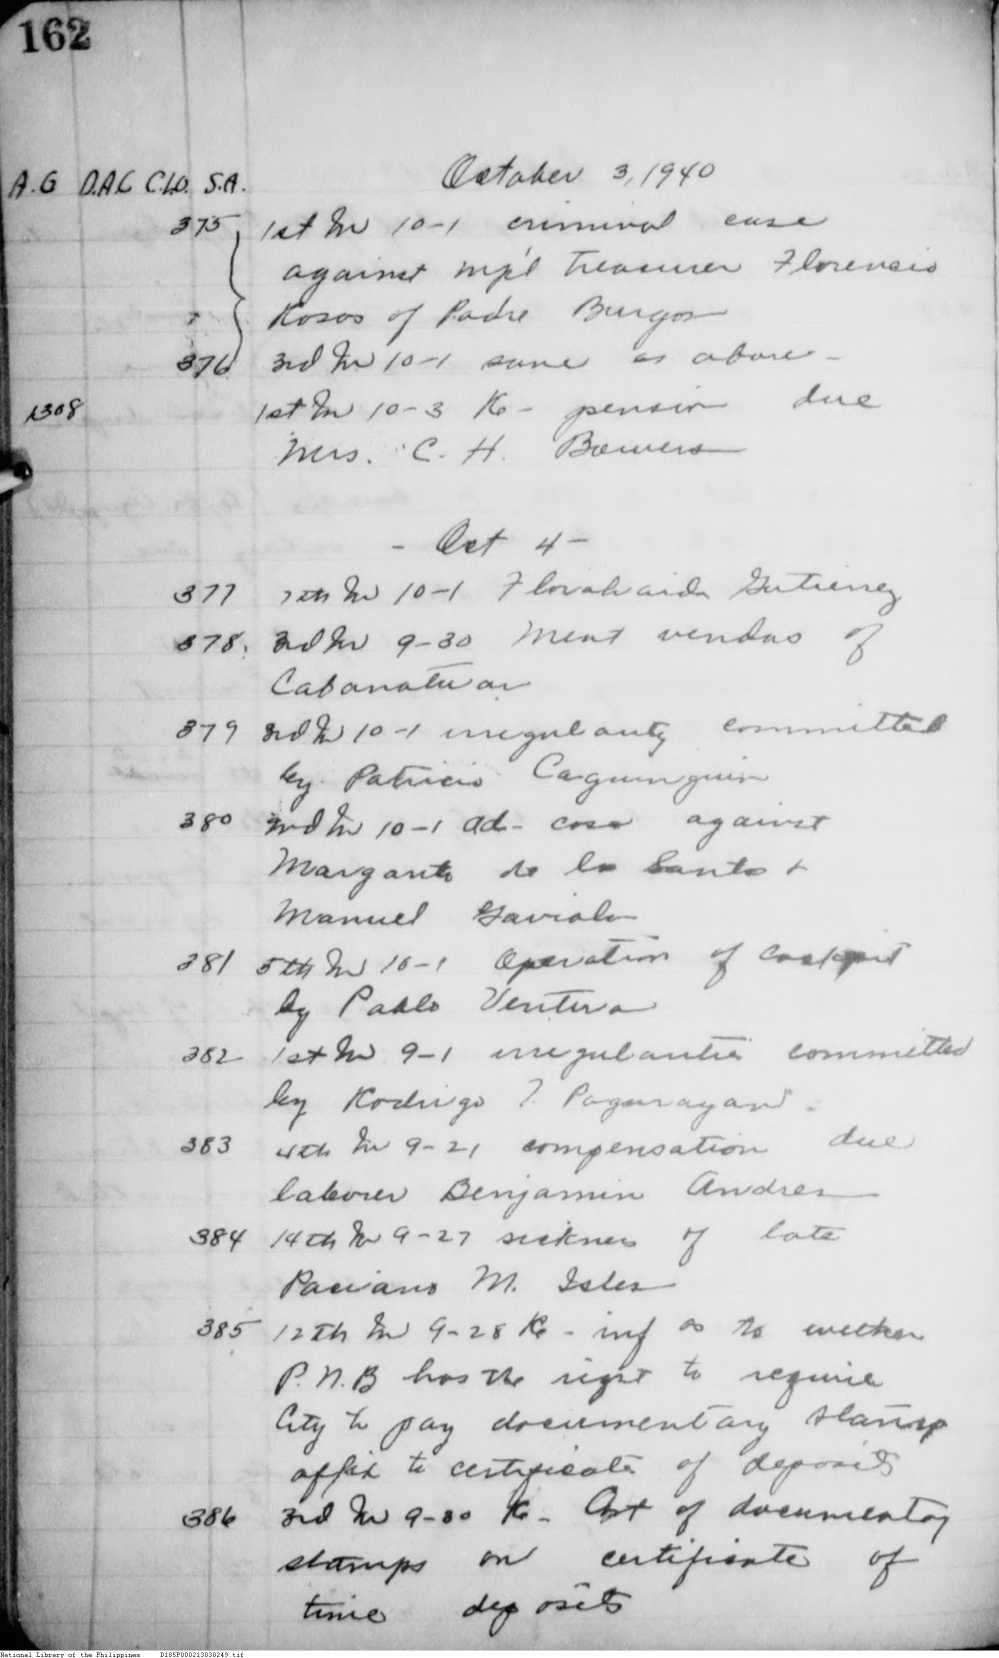 162
October 3, 1940
A.G D.A.C C.L.O. S.A.
375 1st In 10-1 criminal case
against mp'l treasurer Florencio
Rosos of Padre Burgos
376 3rd In 10-1 same as above -
1308 1st In 10-3 Re - pension due
Mrs. C. H. Bowers
- Oct 4 -
377 7th In 10-1 Gutierrez
378. 3rd In 9-30 Meat vendors of
Cabanatuan
379 3rd In 10-1 irregularity committed
by Patricio Caguinguin
380 2nd In 10-1 ad- case against
Margarito de la Santa +
Manuel Gaviola
381 5th In 10-1 Operation of Cockpit
by Pablo Ventura
382 1st In 9-1 irregularities committed
by Rodrigo T. Pagarayan -
383 4th In 9-21 compensation due
laborer Benjamin Andres
384 14th In 9-27 sickness of late
Paciano M. Isles
385 12th In 9-28 Re - inf as to wether
P.N.B has the right to require
City to pay documentary stamp
affix to certificate of deposits
386 3rd In 9-30 Re - of documentary
stamps on certificate of
time deposits
National Library of the Philippines D185P000213838249.tif